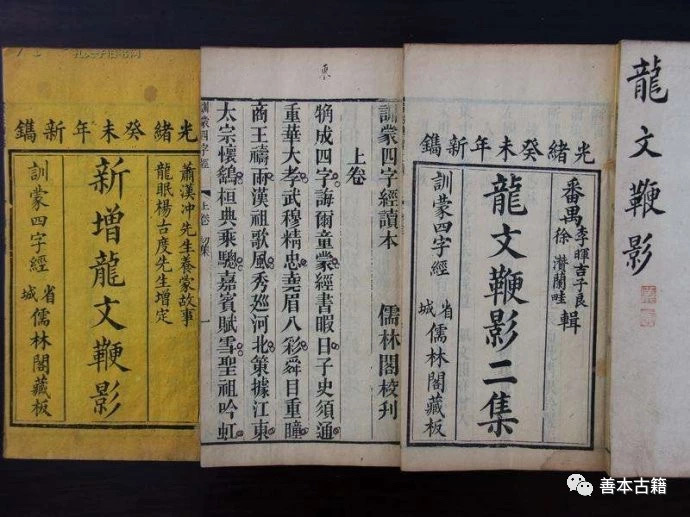 龍文鞭影
光緒癸未年新鐫
番禺李暉吉子良
徐灒蘭畦
輯
龍文鞭影二集
訓蒙四字經
省城儒林閣藏板
訓蒙四字經讀本
儒林閣校刋
上卷
觕成四字誨爾童蒙經書暇日子史須通
重華大孝武穆精忠堯眉八彩舜目重瞳
商王禱雨漢祖歌風秀廵河北策據江東
太宗懷鷂桓典乘驄嘉賓賦雪聖祖吟虹
訓蒙四字經
上卷
一
光緒癸未年新鐫
蕭漢冲先生養蒙故事
龍眠楊古度先生增定
新增龍文鞭影
訓蒙四字經
省城儒林閣藏板
善本古籍